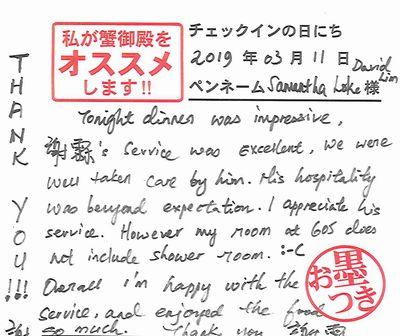 私が蟹御殿を
オススメ
します!!
チェックインの日にち
2019 年 03 月 11 日
David Lim
ペンネーム Samantha Loke 様
THANK YOU!!!
Tonight dinner was impressive,
謝霖's service was excellent, we were
well taken care by him. His hospitality
was beyond expectation. I appreciate his
service. However my room at 605 does
not include shower room. :-(
Overall I'm happy with the
service, and enjoyed the food
so much. Thank you
お墨
つき